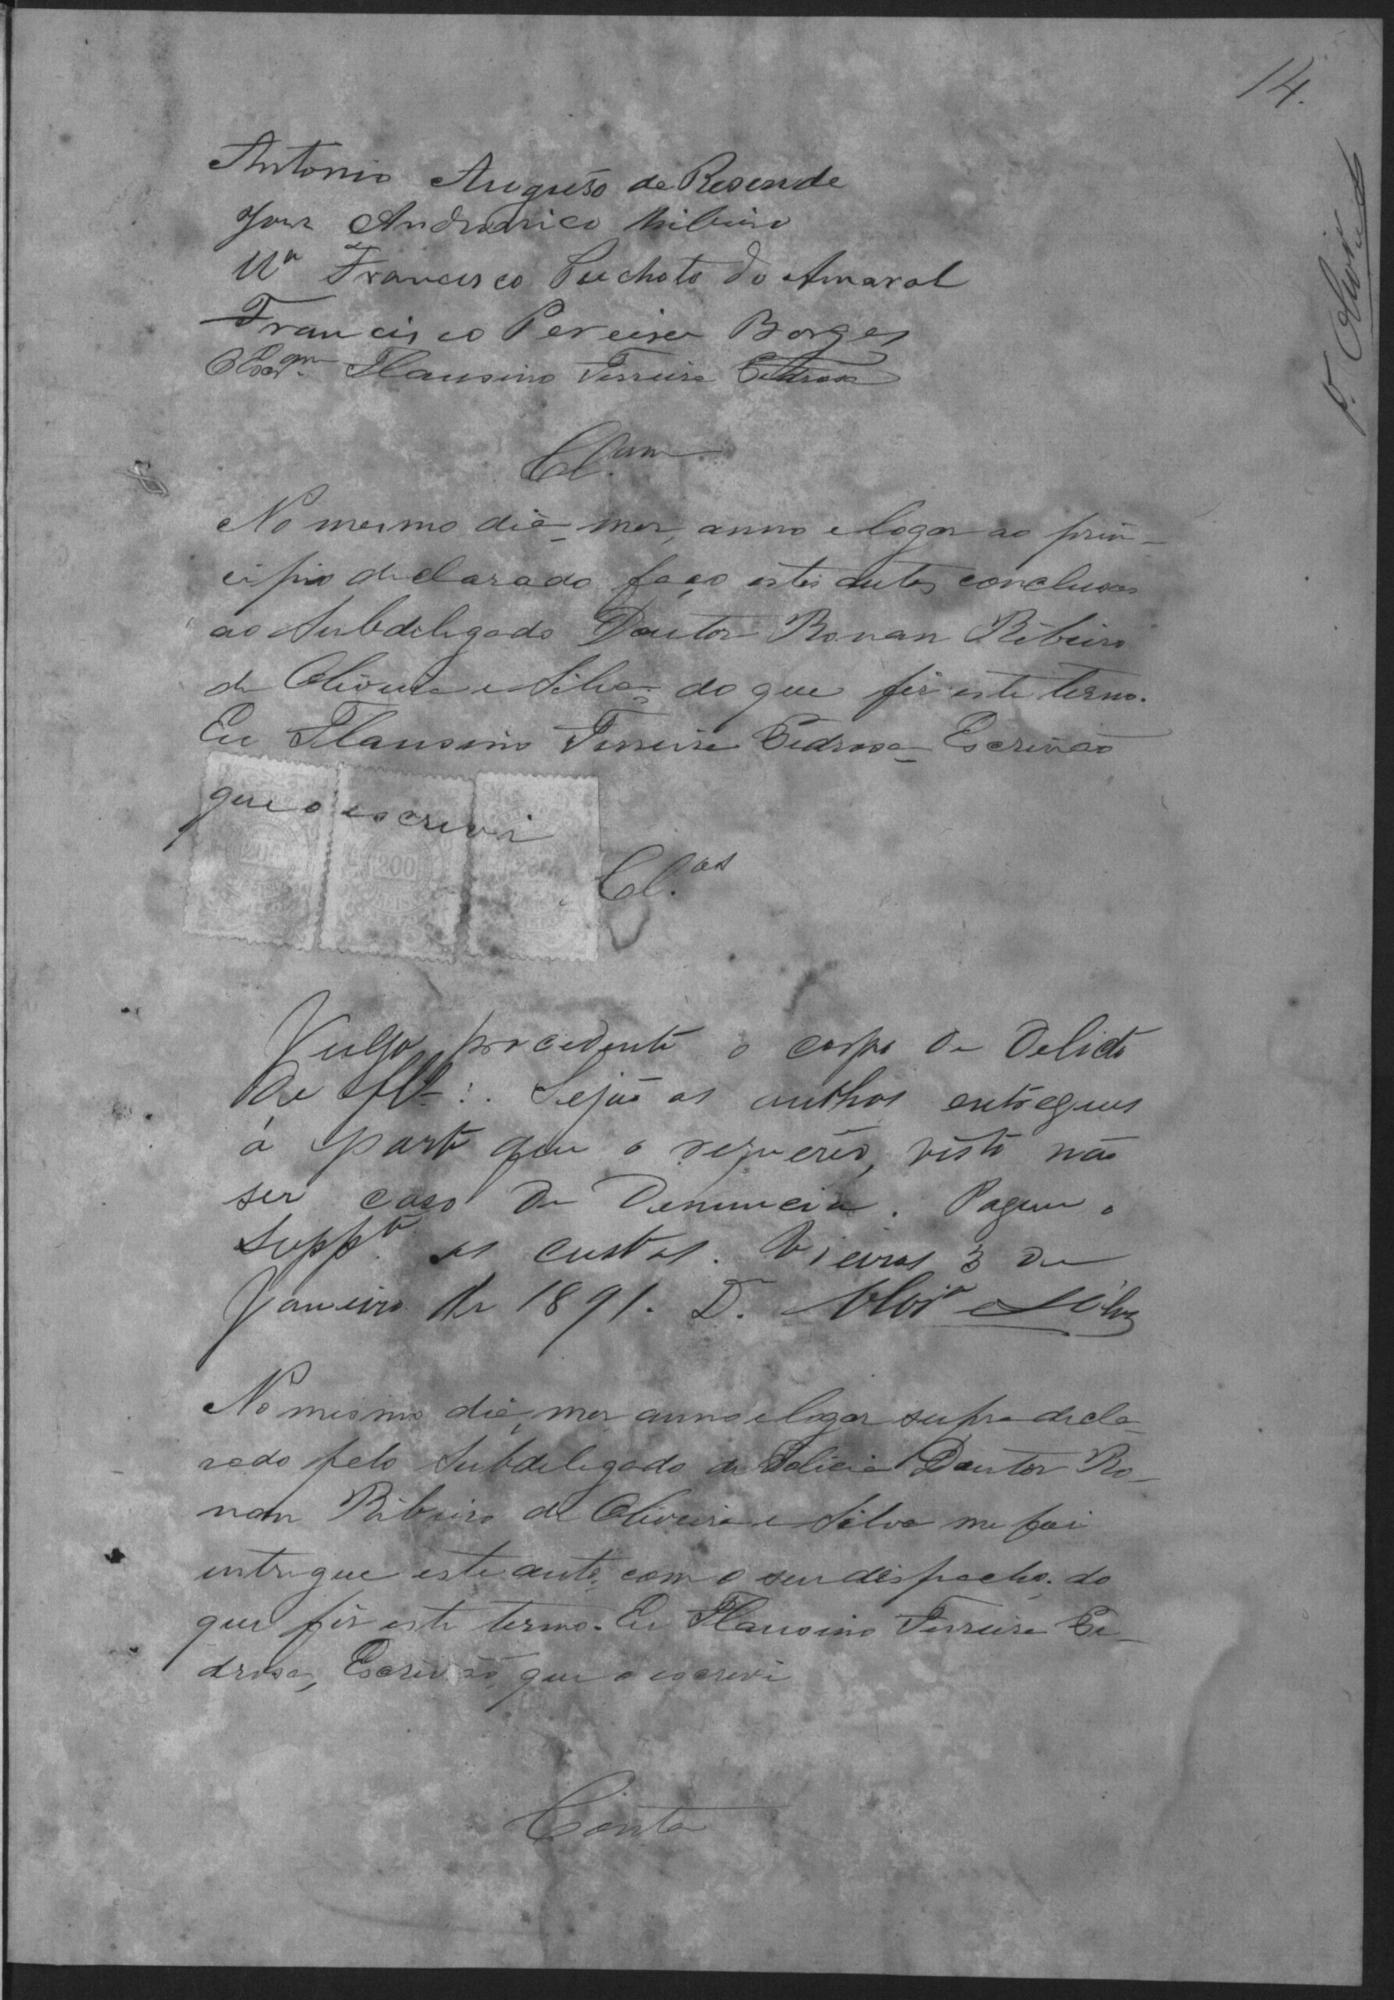 14.
Antonio Augusto de Resende
José Andronico Ribeiro
Francisco Peichoto do Amaral
Francisco Pereira Borges
O Escr.m Flausino Ferreira Pedrosa
Cl.am
No mesmo dia, mez, anno e logar ao prin-
cipio declarado faço estes autos conclusos
ao Subdelegado Doutor Ronan Ribeiro
de Oliveira e Silva, do que fiz este termo.
Eu Flausino Ferreira Pedrosa Escrivão
que o escrevi
200
200
Cl.os
Julgo procedente o corpo de delicto
de fl. Sejão os authos entregues
á parte que o requereo, visto não
ser caso de denuncia. Pague o
Supp.te as custas. Vieiras 3 de
Janeiro de 1891. D. Olivr.a e Silva
No mesmo dia, mez anno e logar supra decla-
rado pelo Subdelegado de Policia Doutor Ro-
nan Ribeiro de Oliveira e Silva me foi
entregue este auto, com o seu despacho. do
que fiz este termo. Eu Flausino Ferreira Pe-
drosa, Escrivão, que o escrevi
Conta